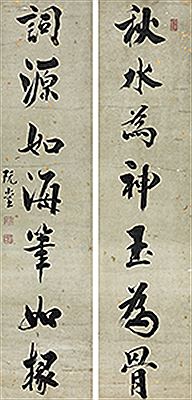 秋水為神玉為骨
詞源如海筆如椽
阮堂